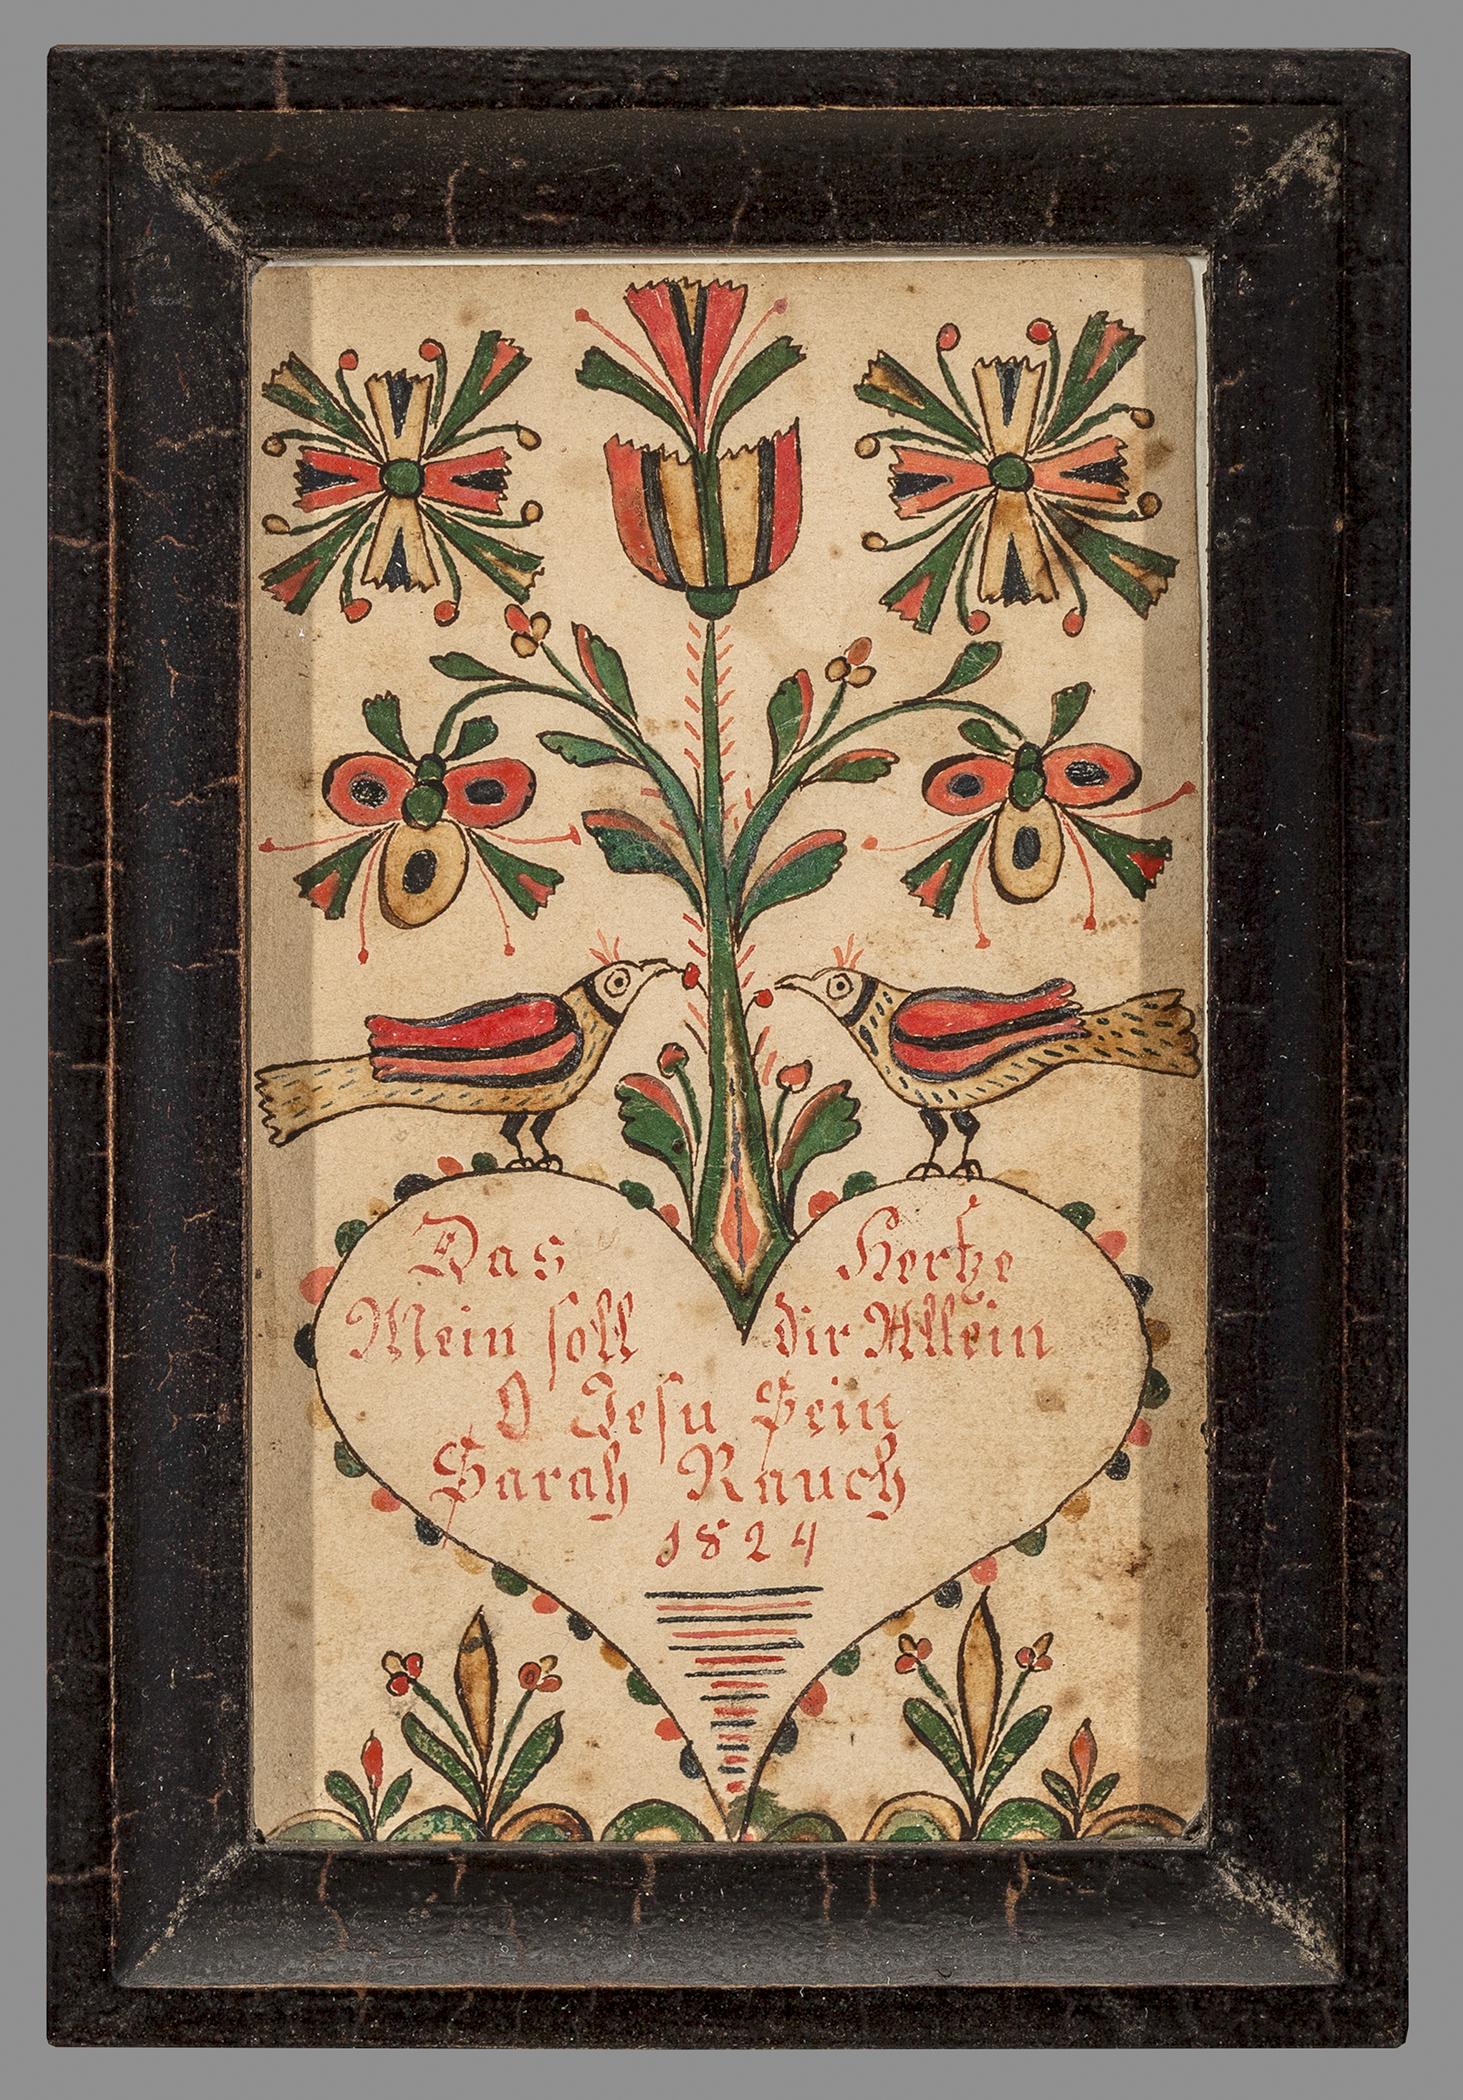 Das Hertze
Mein soll dir Allein
O Jesu Sein
Sarah Rauch
1824